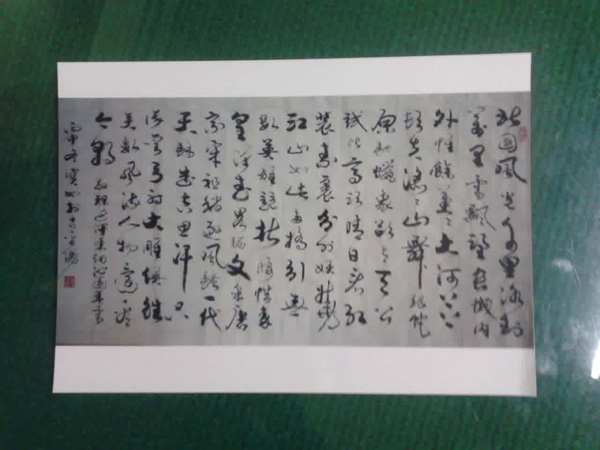 北国風光千里冰封
萬里雪飄望長城内
外惟餘莽々大河上下
頓失滔々山舞銀蛇
原馳蠟象欲与天公
試比高須晴日看红
装素裹分外妖嬈
江山如此多嬌引無
数英雄競折腰惜秦
皇漢武略输文采唐
宗宋祖稍逊風骚一代
天骄成吉思汗只
识弯弓射大雕俱往
矣数風流人物還看
今朝 毛澤東沁園春雪